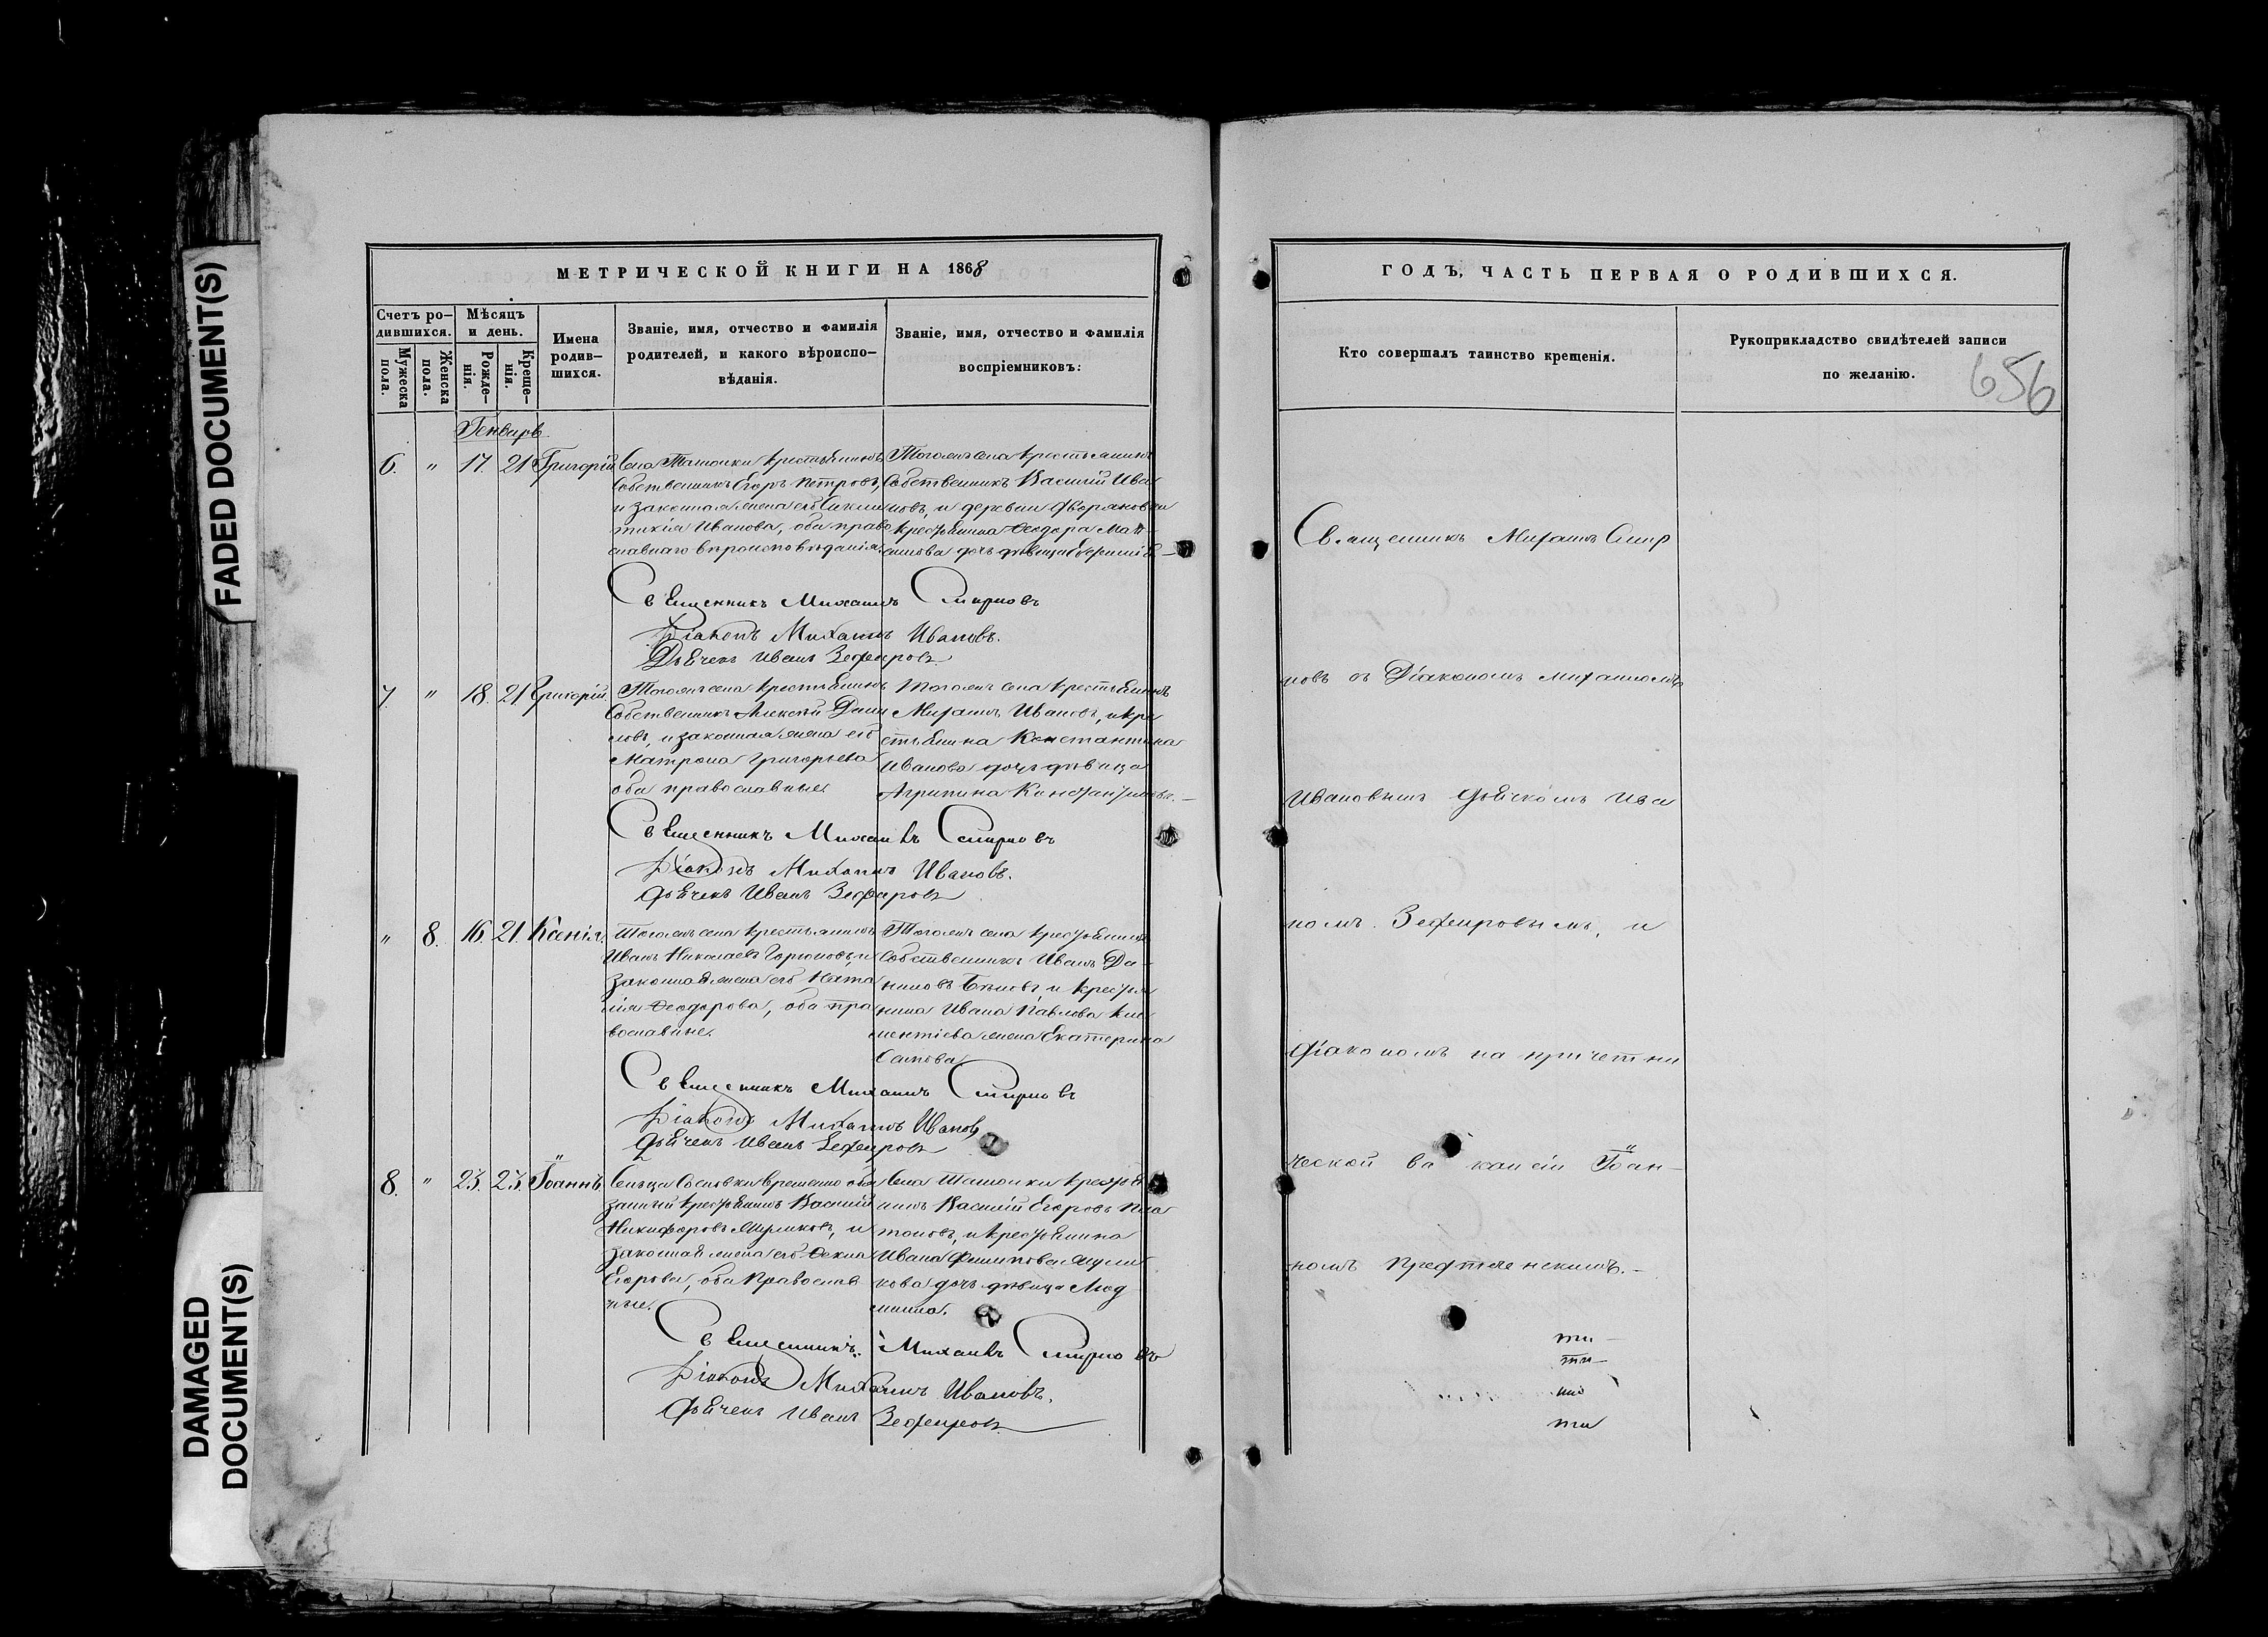 FADED DOCUMENT(S)
DAMAGED
DOCUMENT(S)
МЕТРИЧЕСКОЙ КНИГИ НА 1868
Счетъ ро-
дившихся.
Мужеска
пола.
Женска
пола.
Мѣсяцъ
и день.
Рожде-
нія.
Креще-
нія.
Имена
родив-
шихся.
Званіе, имя, отчество и фамилія
родителей, и какого вѣроиспо-
вѣданія.
Званіе, имя, отчество и фамилія
воспріемниковъ:
Генварь
6. " 17. 21 Григорій
Села крестьянинъ
Собственникъ Егоръ Петровъ,
и законная жена его
Иванова, оба право
славнаго вѣроисповѣданія.
Тогожъ села крестьянинъ
Собственникъ Василій Ива
новъ, и деревни
крестьянина Ѳеодора
дочь дѣвица
Священникъ Михаилъ Смирновъ
Діаконъ Михаилъ Ивановъ.
Дьячекъ Иванъ Зефировъ
7. " 18. 21 Григорій.
Тогожъ села крестьянинъ
Собственникъ Алексѣй Дани
ловъ, и законная жена его
Матрона Григорьева
оба православные
Тогожъ села крестьянинъ
Михаилъ Ивановъ, и кре
стьянина Константина
Иванова дочь дѣвица
Агрипина Константинова.-
Священникъ Михаилъ Смирновъ
Діаконъ Михаилъ Ивановъ.
Дьячекъ Иванъ Зефировъ
" 8. 16. 21. Ксенія.
Тогожъ села крестьянинъ
Иванъ Николаевъ Горюновъ, и
законная жена его Ната
лія Ѳеодорова, оба пра
вославные.
Тогожъ села крестьянинъ
Собственникъ Иванъ Да-
ниловъ Бѣловъ, и крестья
нина Ивана Павлова Кли
ментіева жена Екатерина
Священникъ Михаилъ Смирновъ
Діаконъ Михаилъ Ивановъ
Дьячекъ Иванъ Зефировъ
8. " 23. 23. Іоаннъ
Сельца Сосновки временно обя
занный крестьянинъ Василій
Никифоровъ и
законная жена его Ѳекла
Егорова, оба Православ
ные.
Села крестья
нинъ Василій Егоровъ Пла
тоновъ, и крестьянина
Ивана Филиппова
кова дочь дѣвица Люд
мила.
Священникъ Михаилъ Смирновъ
Діаконъ Михаилъ Ивановъ.
Дьячекъ Иванъ Зефировъ
ГОДЪ, ЧАСТЬ ПЕРВАЯ О РОДИВШИХСЯ.
Кто совершалъ таинство крещенія.
Рукоприкладство свидѣтелей записи
по желанію.
656
Священникъ Михаилъ Смир
новъ съ Діакономъ Михаиломъ
Ивановымъ дьячкомъ Ива
номъ Зефировымъ, и
діакономъ на причетни
ческой вакансіи Іоан-
номъ Предтеченскимъ.-